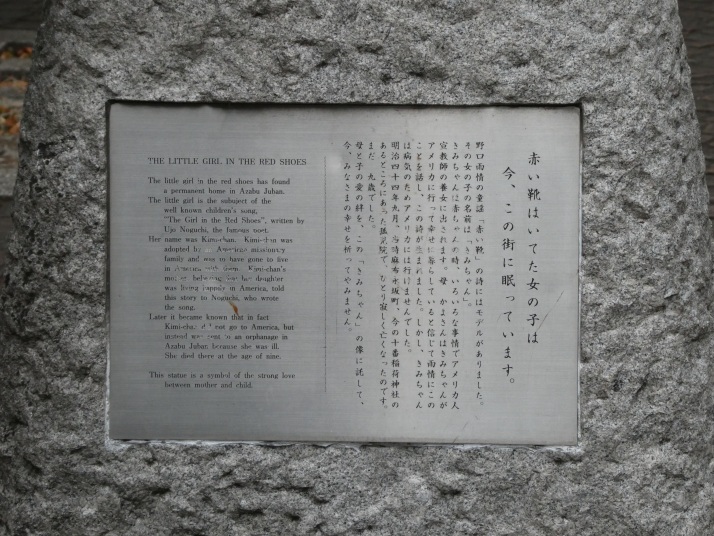 THE LITTLE GIRL IN THE RED SHOES
The little girl in the red shoes has found
a permanent home in Azabu Juban.
The little girl is the subuject of the
well known children's song,
"The Girl in the Red Shoes", written by
Ujo Noguchi, the famous poet.
Her name was Kimi-chan. Kimi-chan was
adopted by American missionary
family and was to have gone to live
in America with them. Kimi-chan's
mother believing her daughter
was living happily in America, told
this story to Noguchi, who wrote
the song.
Later it became known that in fact
Kimi-chan did not go to America, but
instead was sent to an orphanage in
Azabu Juban because she was ill.
She died there at the age of nine.
This statue is a symbol of the strong love
between mother and child.
赤い靴はいてた女の子は
今、この街に眠っています。
野口雨情の童謡「赤い靴」の詩にはモデルがありました。
その女の子の名前は「きみちゃん」。
きみちゃんは赤ちゃんの時、いろいろな事情でアメリカ人
宣教師の養女に出されます。母 かよさんはきみちゃんが
アメリカに行って幸せに暮らしていると信じて雨情にこの
ことを話し、この詩が生まれました。しかし、きみちゃん
は病気のためアメリカには行けませんでした。
明治四十四年九月、当時麻布永坂町、今の十番稲荷神社の
あるところにあった孤児院で、ひとり寂しく亡くなったのです。
まだ 九歳でした。
母と子の愛の絆を、この「きみちゃん」の像に託して、
今、みなさまの幸せを祈ってやみません。